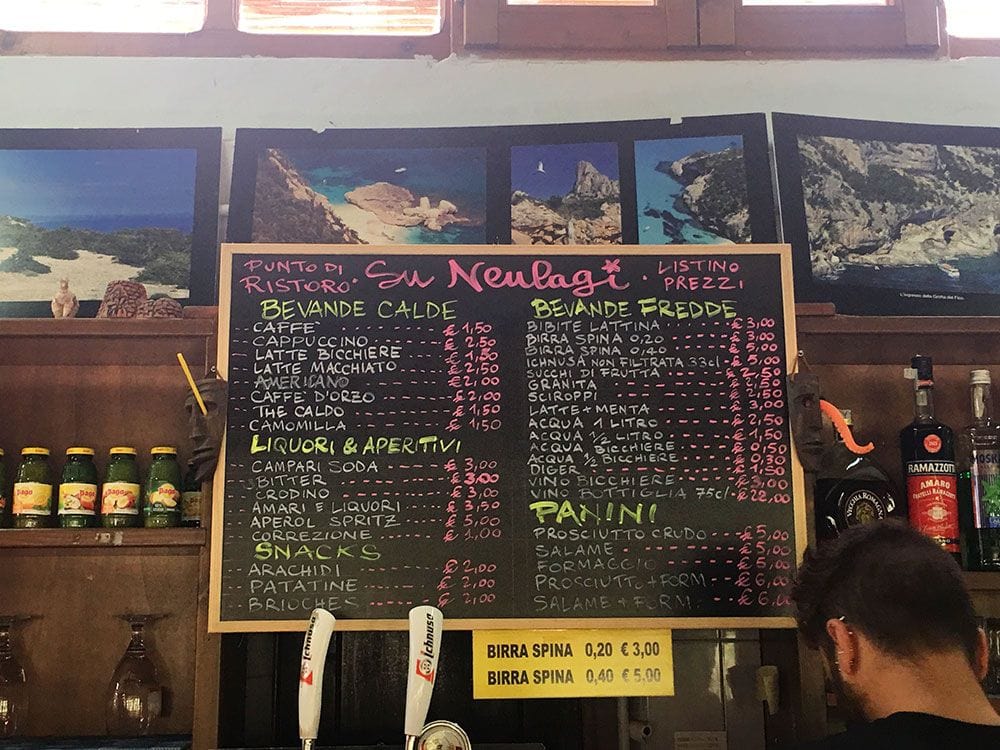 L'ingresso della Grotta del Fico.
PUNTO DI RISTORO Su Neulagi LISTINO PREZZI
BEVANDE CALDE
CAFFE' € 1,50
CAPPUCCINO € 2,50
LATTE BICCHIERE € 1,50
LATTE MACCHIATO € 2,50
AMERICANO € 2,00
CAFFE' D'ORZO € 2,00
THE CALDO € 1,50
CAMOMILLA € 1,50
LIQUORI & APERITIVI
CAMPARI SODA € 3,00
BITTER € 3,00
CRODINO € 3,00
AMARI E LIQUORI € 3,50
APEROL SPRITZ € 5,00
CORREZIONE € 1,00
SNACKS
ARACHIDI € 2,00
PATATINE € 2,00
BRIOCHES € 2,00
BEVANDE FREDDE
BIBITE LATTINA € 3,00
BIRRA SPINA 0,20 € 3,00
BIRRA SPINA 0,40 € 5,00
ICHNUSA NON FILTRATA 33cl € 5,00
SUCCHI DI FRUTTA € 2,50
GRANITA € 2,50
SCIROPPI € 2,50
LATTE + MENTA € 3,00
ACQUA 1 LITRO € 2,50
ACQUA 1/2 LITRO € 1,50
ACQUA BICCHIERE € 0,50
ACQUA 1/2 BICCHIERE € 0,30
DIGER € 1,50
VINO BICCHIERE € 3,00
VINO BOTTIGLIA 75cl € 22,00
PANINI
PROSCIUTTO CRUDO € 5,00
SALAME € 5,00
FORMAGGIO € 5,00
PROSCIUTTO + FORM. € 6,00
SALAME + FORM. € 6,00
BIRRA SPINA 0,20 € 3,00
BIRRA SPINA 0,40 € 5,00
Ichnusa
Ichnusa
pago
pago
pago
pago
RAMAZZOTTI
AMARO
FRATELLI RAMAZZOTTI
VECCHIA ROMAGNA